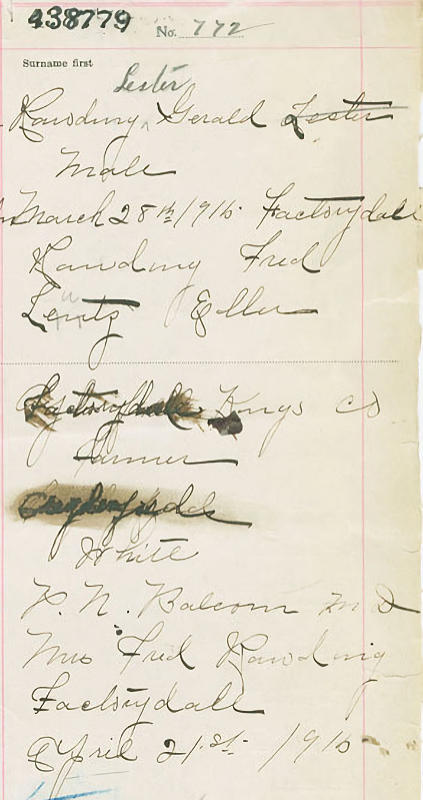 438779 No. 772
Surname first
Lester
Rawding Gerald Lester
Male
March 28th 1916 Factorydale
Rawding Fred
Lentz Ellen
Factorydale Kings Co
Farmer
White
P. N. Balcom M D
Mrs Fred Rawding
Factorydale
April 21st 1916